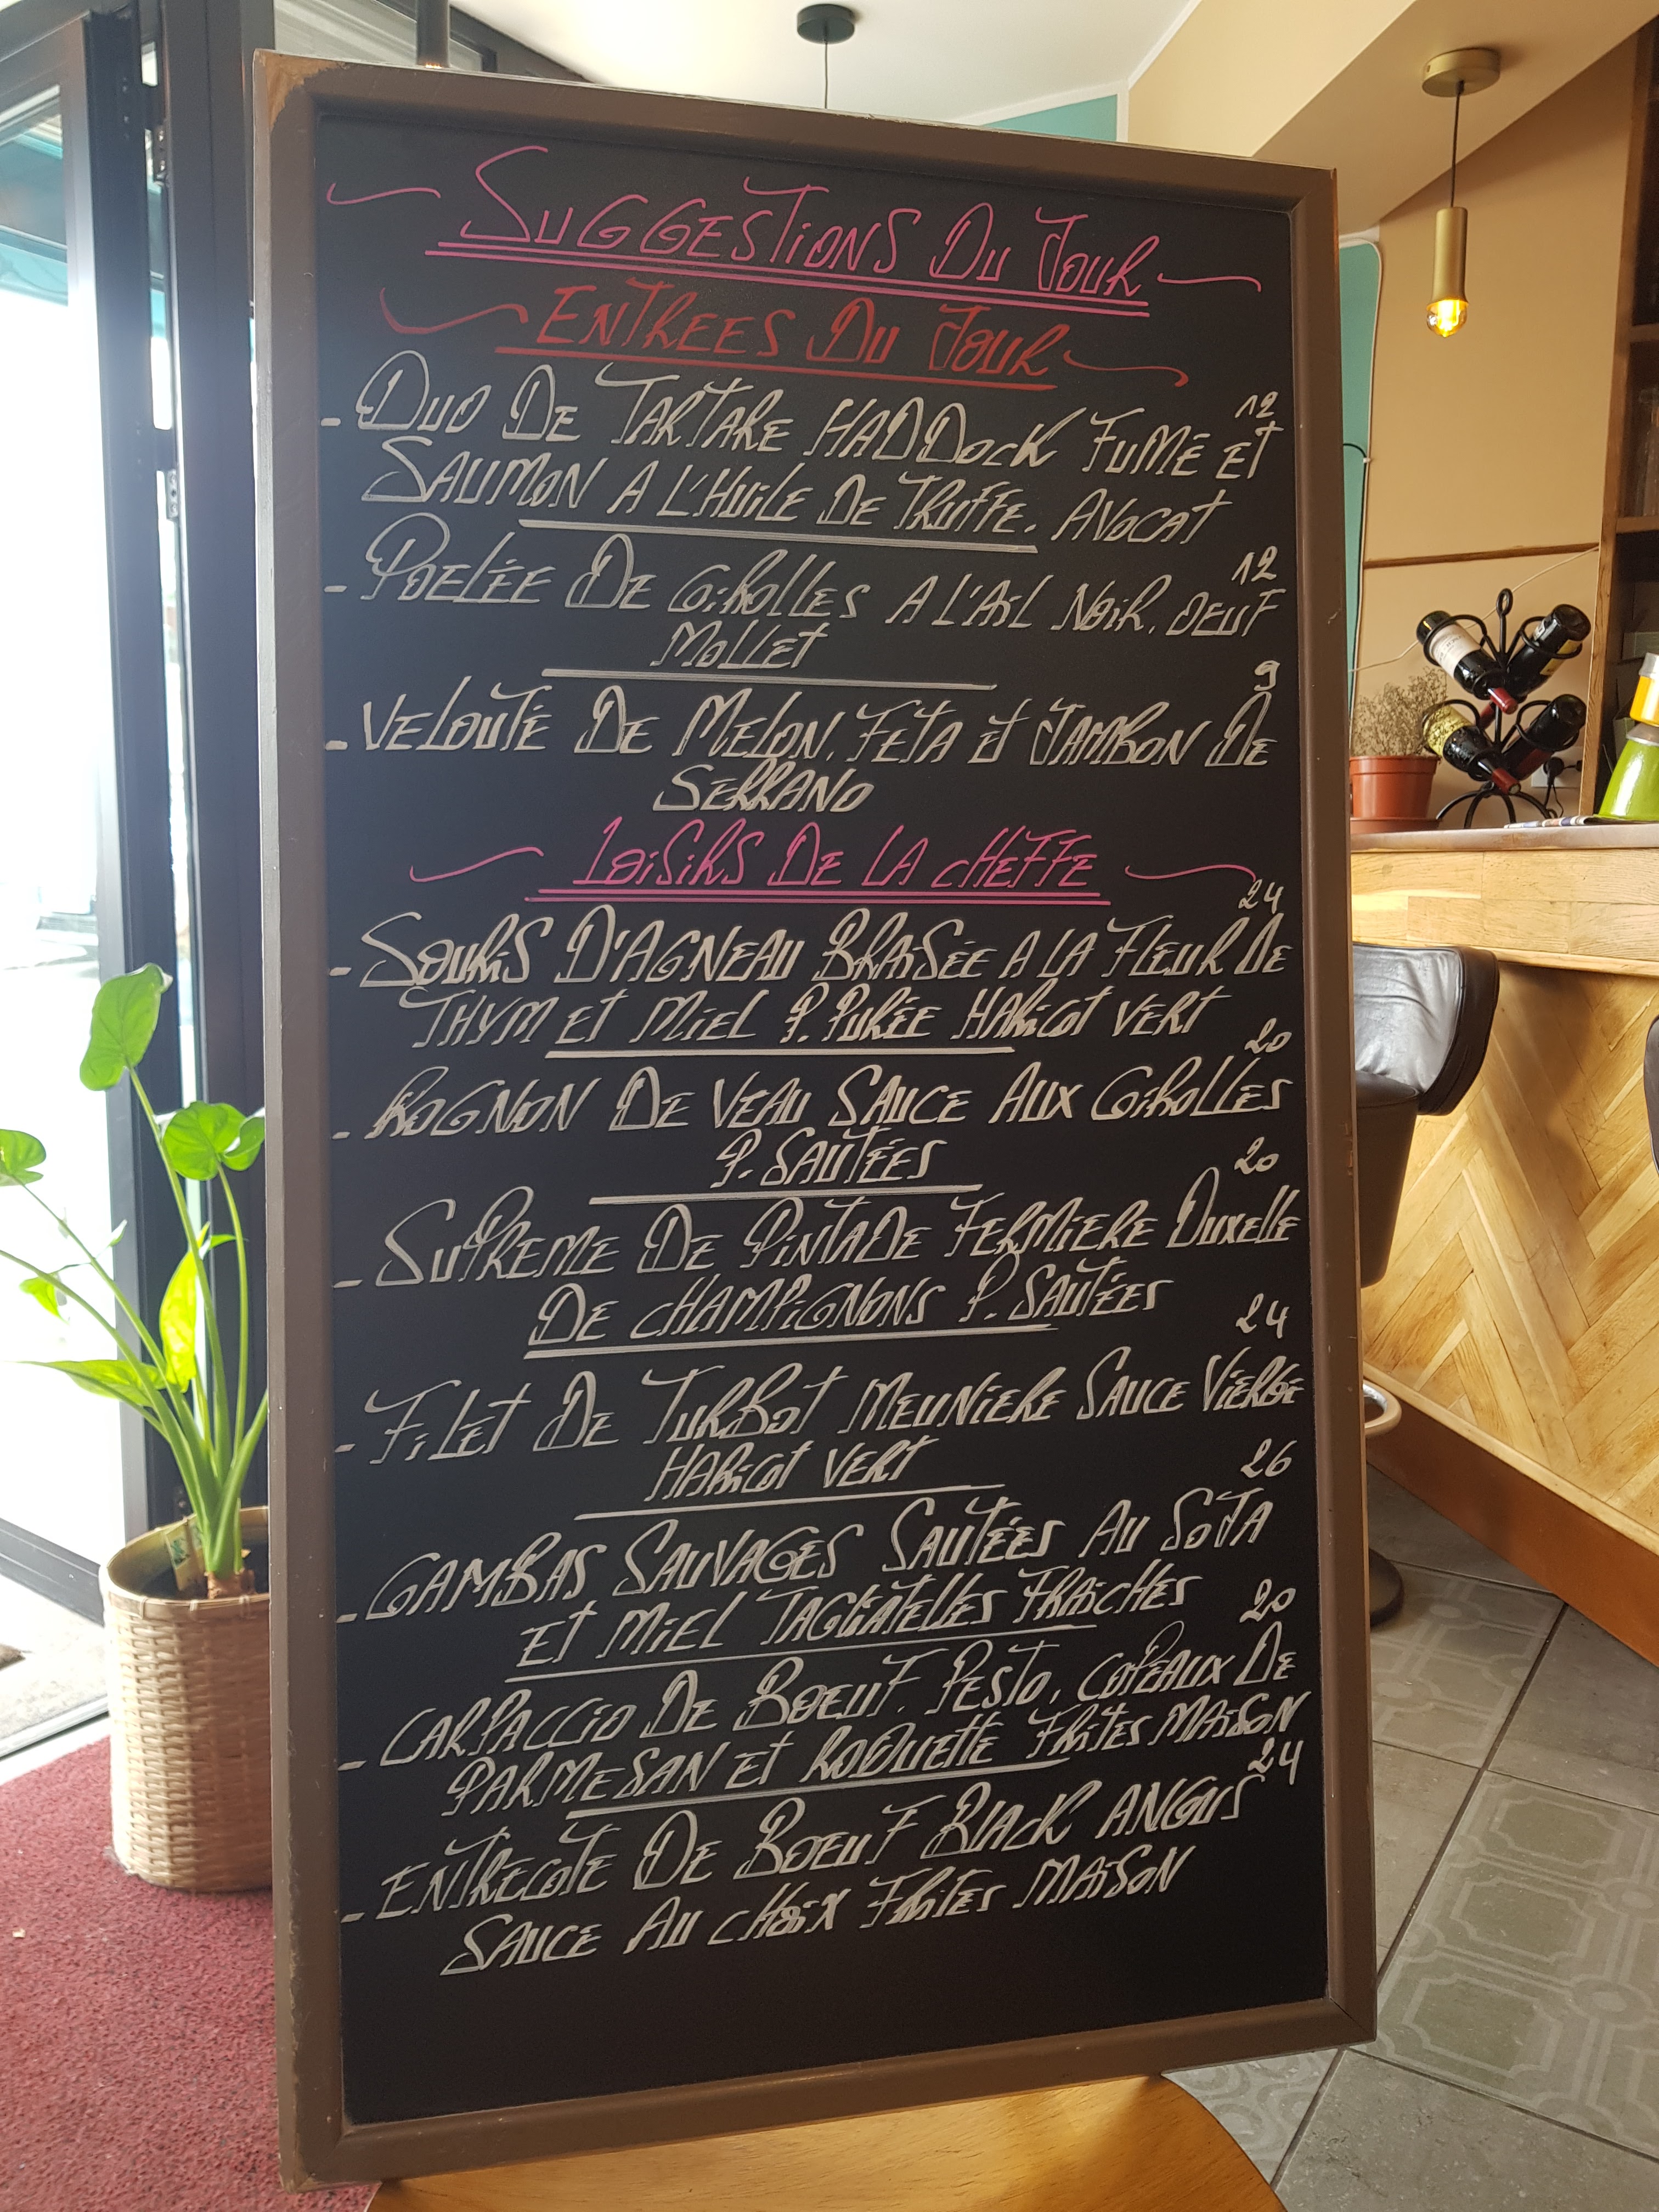 SUGGESTIONS DU JOUR
ENTREES DU JOUR
12
- DUO DE TARTARE HADDOCK FUMÉ ET
SAUMON A L'HUILE DE TRUFFE. AVOCAT
12
- POELÉE DE GIROLLES A L'AIL NOIR, OEUF
MOLLET
9
- VELOUTÉ DE MELON, FETA ET JAMBON DE
SERRANO
LOISIRS DE LA CHEFFE
24
- SOURIS D'AGNEAU BRAISÉE A LA FLEUR DE
THYM ET MIEL P. PURÉE HARICOT VERT
20
- ROGNON DE VEAU SAUCE AUX GIROLLES
P. SAUTÉES
20
- SUPREME DE PINTADE FERMIERE DUXELLE
DE CHAMPIGNONS P. SAUTÉES
24
- FILET DE TURBOT MEUNIERE SAUCE VIERGE
HARICOT VERT
26
- GAMBAS SAUVAGES SAUTÉES AU SOJA
ET MIEL TAGLIATELLES FRAICHES
20
- CARPACCIO DE BOEUF, PESTO, COPEAUX DE
PARMESAN ET ROQUETTE FRITES MAISON
24
- ENTRECOTE DE BOEUF BLACK ANGUS
SAUCE AU CHOIX FRITES MAISON